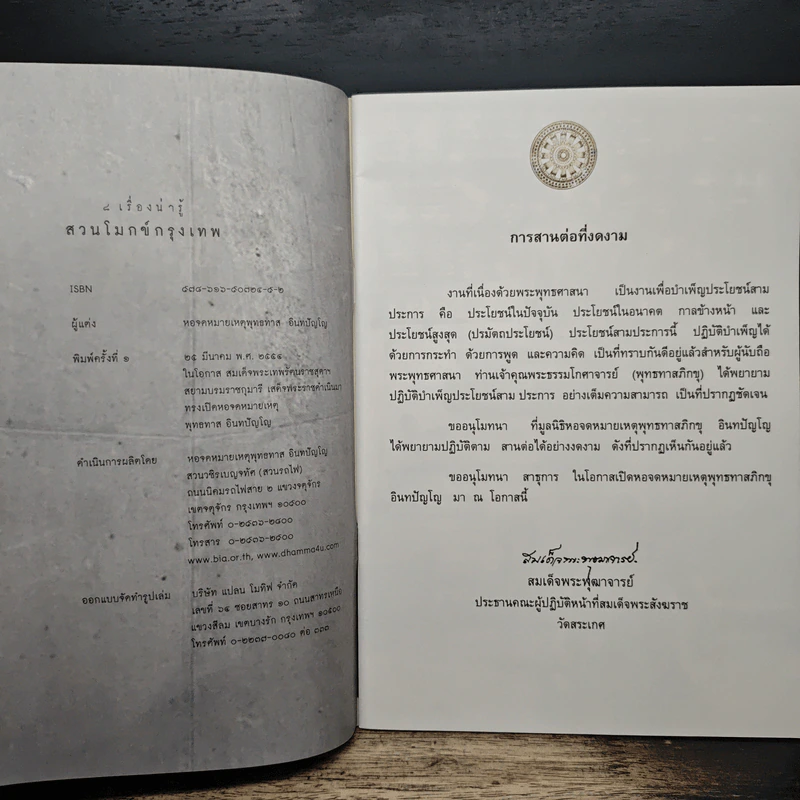 ๘ เรื่องน่ารู้
สวนโมกข์กรุงเทพ
ISBN ๙๗๘-๖๑๖-๙๐๓๒๕-๙-๒
ผู้แต่ง หอจดหมายเหตุพุทธทาส อินทปัญโญ
พิมพ์ครั้งที่ ๑ ๒๕ มีนาคม พ.ศ. ๒๕๕๔
ในโอกาส สมเด็จพระเทพรัตนราชสุดาฯ
สยามบรมราชกุมารี เสด็จพระราชดำเนินมา
ทรงเปิดหอจดหมายเหตุ
พุทธทาส อินทปัญโญ
ดำเนินการผลิตโดย หอจดหมายเหตุพุทธทาส อินทปัญโญ
สวนวชิรเบญจทัศ (สวนรถไฟ)
ถนนนิคมรถไฟสาย ๒ แขวงจตุจักร
เขตจตุจักร กรุงเทพฯ ๑๐๙๐๐
โทรศัพท์ ๐-๒๙๓๖-๒๘๐๐
โทรสาร ๐-๒๙๓๖-๒๙๐๐
www.bia.or.th, www.dhamma4u.com
ออกแบบจัดทำรูปเล่ม บริษัท แปลน โมทิฟ จำกัด
เลขที่ ๖๔ ซอยสาทร ๑๐ ถนนสาทรเหนือ
แขวงสีลม เขตบางรัก กรุงเทพฯ ๑๐๕๐๐
โทรศัพท์ ๐-๒๒๓๗-๐๐๘๐ ต่อ ๓๓๓
การสานต่อที่งดงาม
งานที่เนื่องด้วยพระพุทธศาสนา เป็นงานเพื่อบำเพ็ญประโยชน์สาม
ประการ คือ ประโยชน์ในปัจจุบัน ประโยชน์ในอนาคต กาลข้างหน้า และ
ประโยชน์สูงสุด (ปรมัตถประโยชน์) ประโยชน์สามประการนี้ ปฏิบัติบำเพ็ญได้
ด้วยการกระทำ ด้วยการพูด และความคิด เป็นที่ทราบกันดีอยู่แล้วสำหรับผู้นับถือ
พระพุทธศาสนา ท่านเจ้าคุณพระธรรมโกศาจารย์ (พุทธทาสภิกขุ) ได้พยายาม
ปฏิบัติบำเพ็ญประโยชน์สาม ประการ อย่างเต็มความสามารถ เป็นที่ปรากฏชัดเจน
ขออนุโมทนา ที่มูลนิธิหอจดหมายเหตุพุทธทาสภิกขุ อินทปัญโญ
ได้พยายามปฏิบัติตาม สานต่อได้อย่างงดงาม ดังที่ปรากฏเห็นกันอยู่แล้ว
ขออนุโมทนา สาธุการ ในโอกาสเปิดหอจดหมายเหตุพุทธทาสภิกขุ
อินทปัญโญ มา ณ โอกาสนี้
สมเด็จพระพุฒาจารย์
สมเด็จพระพุฒาจารย์
ประธานคณะผู้ปฏิบัติหน้าที่สมเด็จพระสังฆราช
วัดสระเกศ